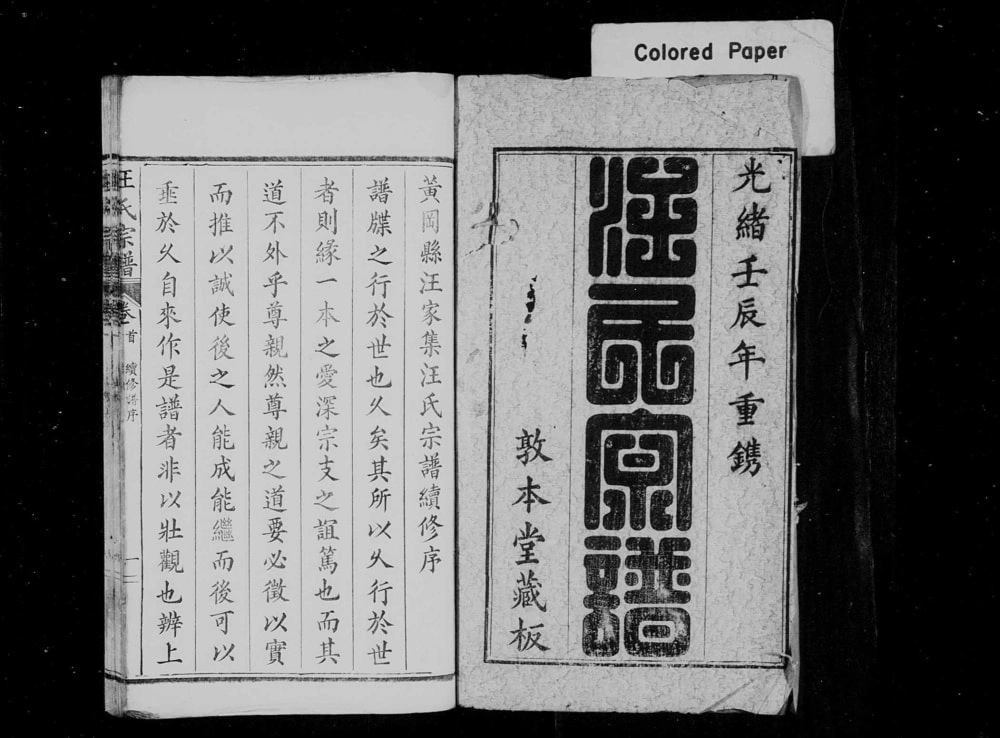 Colored Paper
光緒壬辰年重鐫
汪氏宗譜
敦本堂藏板
黃岡縣汪家集汪氏宗譜續修序
譜牒之行於世也久矣其所以久行於世
者則緣一本之愛深宗支之誼篤也而其
道不外乎尊親然尊親之道要必徵以實
而推以誠使後之人能成能繼而後可以
垂於久自來作是譜者非以壯觀也辨上
汪氏宗譜
卷首
續修譜序
一